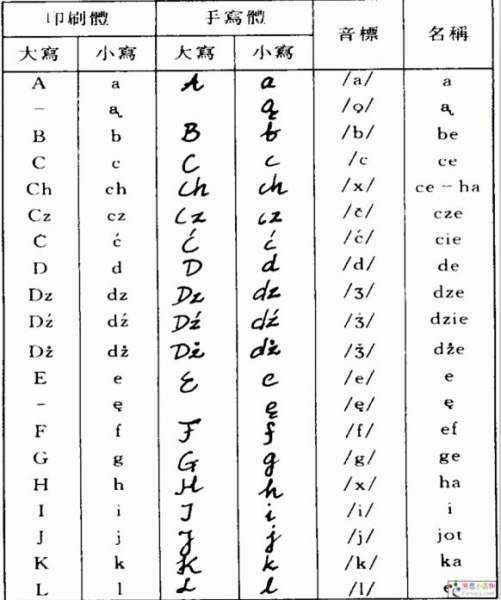 印刷體 手寫體 音標 名稱
大寫 小寫 大寫 小寫
A a A a /a/ a
– ą ą /ǫ/ ą
B b B b /b/ be
C c C c /c ce
Ch ch Ch ch /x/ ce – ha
Cz cz Cz cz /č/ cze
C ć Ć ć /ć/ cie
D d D d /d/ de
Dz dz Dz dz /ʒ/ dze
Dź dź Dź dź /ʒ́/ dzie
Dż dż Dż dż /ǯ/ dże
E e E e /e/ e
– ę ę /ę/ ę
F f F f /f/ ef
G g G g /g/ ge
H h H h /x/ ha
I i I i /i/ i
J j J j /j/ jot
K k K k /k/ ka
L l L l /l/